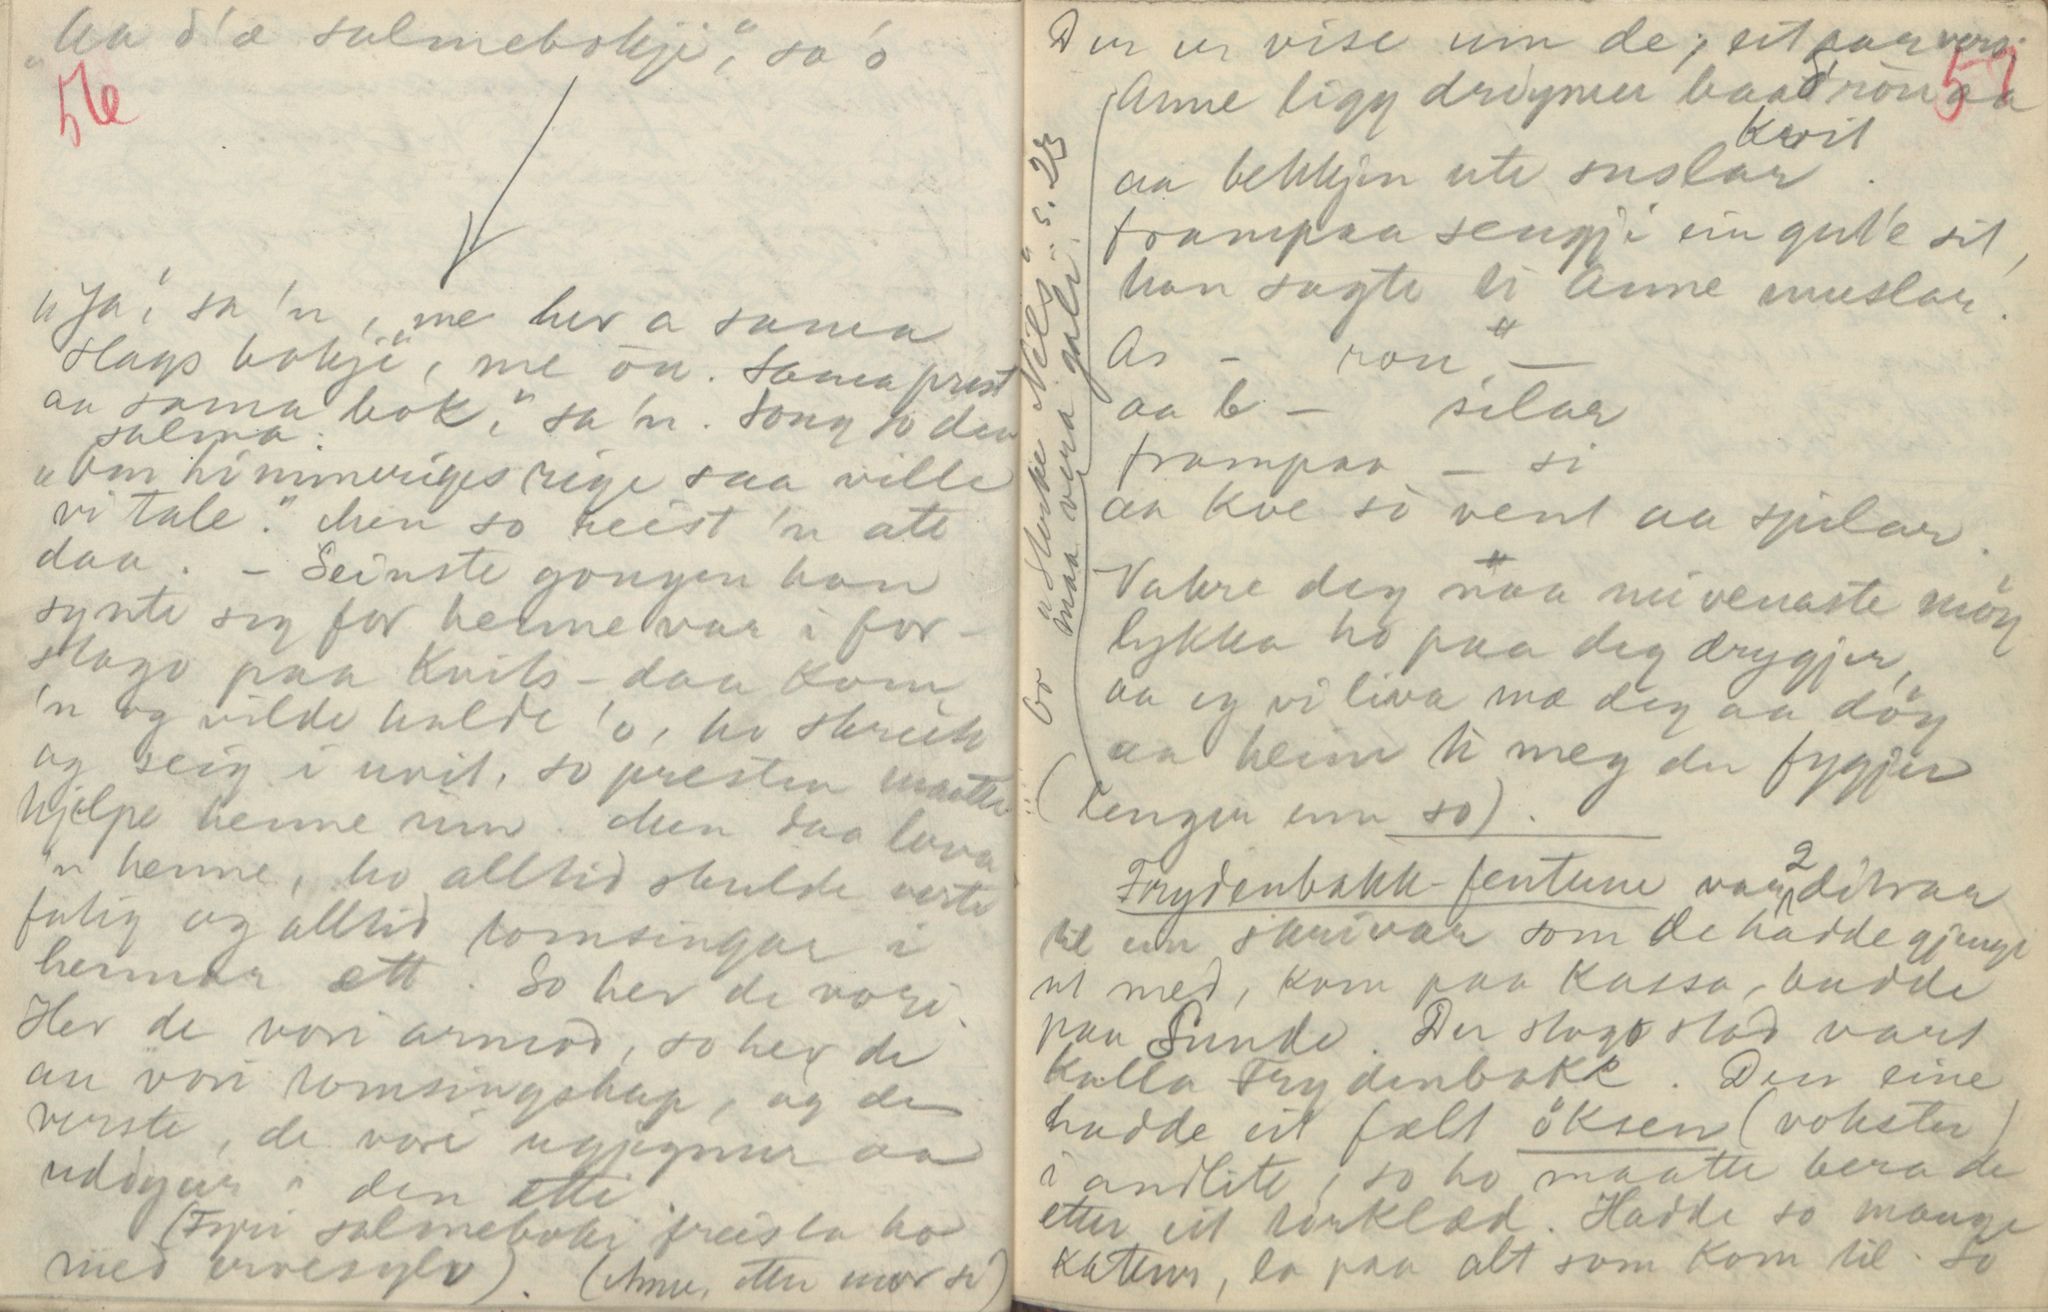 "Aa d'æ salmebokji", sa 'o
56
"Ja", sa 'n, "me her a sama
slags bokji", me òu. Sama prest
aa sama bok", sa 'n. Song so den
salma:
"Om himmeriges rige saa ville
vi tale." Men so reist 'n att
daa. – Seinste gongen han
synte sig for henne var i for-
stogo paa Kvits – daa kom
'n og vilde halde 'o, ho skreik
og seig i uvit, so presten maatte
hjelpe henne inn. Men daa lova
'n henne, ho alltid skulde verte
fatig og alltid tomsingar i
hennar ætt. So hev de vori.
Hev de vori armod, so hev de
au vori tomsingskap, og de
verste, de vori ugjegnur aa
udøgur i den ætti.
(Fyri salmeboki freista ho
med arvesylv). (Anne, etter mor si)
Der er vise um de, eit par vers:
57
Anne ligg drøymer baad' ròu aa
kvit
aa bekkjen ute suslar.
frampaa sengji ein gut'e sit,
han sagte ti Anne muslar.
As – rou –
aa b – silar
frampaa – si
aa kve so vent aa spelar.
Vakre deg naa mi venaste møy
lykka ho paa deg drygjer,
aa eg vi liva mæ deg aa døy
aa heim ti meg du fygjer
(lenger enn so).
Cr "Sterke Nils" s. 23
maa vera gali.
Frydenbakk-fentune var 2 døtrar
til ein skrivar som de hadde gjengi
ut med, kom paa kassa, budde
paa Sunde. Der stogo stod vart
kalla Frydenbakk. Den eine
hadde eit fælt öksen (vokster)
i andlite, so ho maatte bera de
etter eit tørklæd. Hadde so mange
katter, la paa alt som kom til. So